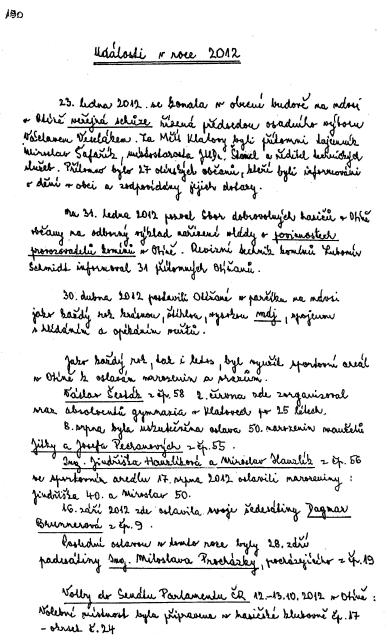 190
Události v roce 2012
23. ledna 2012 se konala v obecní budově na návsi
v Otíně veřejná schůze řízená předsedou osadního výboru
Václavem Veselákem. Za MěÚ Klatovy byli přítomni tajemník
Miroslav Šafařík, místostarosta JUDr. Štancl a ředitel technických
služeb. Přítomno bylo 27 otínských občanů, kteří byli informováni
o dění v obci a zodpovědány jejich dotazy.
Na 31. ledna 2012 pozval Sbor dobrovolných hasičů v Otíně
občany na odborný výklad nařízené vlády o povinnostech
provozovatelů komínů v Otíně. Revizní technik komínů Lubomír
Schmidt informoval 31 přítomných Otíňanů.
30. dubna 2012 postavili Otíňané v parčíku na návsi
jako každý rok krásnou, štíhlou, vysokou máj, spojenou
s hlídáním a opékáním vuřtů.
Jako každý rok, tak i letos, byl využit sportovní areál
v Otíně k oslavám narozenin a srazům.
Václav Šesták z čp. 58 2. června zde zorganizoval
sraz absolventů gymnasia v Klatovech po 25 letech.
8. srpna byla uskutečněna oslava 50. narozenin manželů
Jitky a Josefa v čp. 55.
Ing. Jindřiška Hauzlíková a Miroslav Hauzlík z čp. 56
ve sportovním areálu 17. srpna 2012 oslavili narozeniny:
Jindřiška 40. a Miroslav 50.
16. září 2012 zde oslavila svoje šedesátiny Dagmar
Brunnerová z čp. 9.
Poslední oslavou v tomto roce byly 28. září
padesátiny Ing. Miloslava Procházky, pocházejícího z čp. 19
Volby do Senátu Parlamentu ČR 12.-13.10.2012 v Otíně:
Volební místnost byla připravena v hasičské klubovně čp. 87
- okrsek č. 24